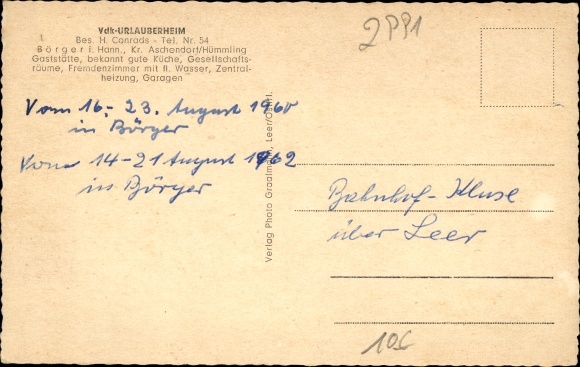 VdK-URLAUBERHEIM
Bes. H. Conrads - Tel. Nr. 54
Börger i. Hann., Kr. Aschendorf/Hümmling
Gaststätte, bekannt gute Küche, Gesellschafts-
räume, Fremdenzimmer mit fl. Wasser, Zentral-
heizung, Garagen
Vom 16.- 23. August 1960
in Börger
Vom 14-21 August 1962
in Börger
Verlag Photo Graalmann, Leer/Ostfrl.
Bahnhof-Kluse
über Leer